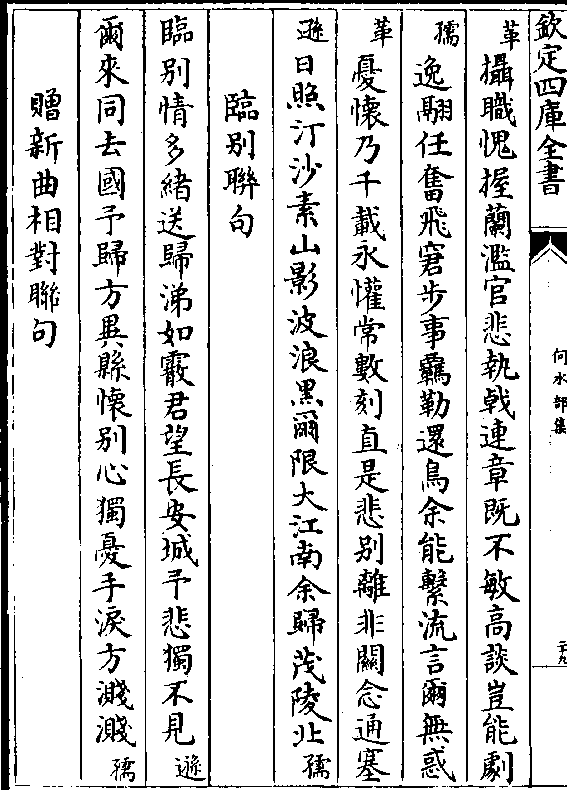 欽定四庫全書
何水部集
二十九
革攝職愧握蘭濫官悲執戟連章既不敏高談豈能劇
孺逸翮任奮飛窘步事羈勒還鳥余能繫流言爾無惑
革憂懷乃千載永懽常數刻直是悲別離非關念通塞
遜日照汀沙素山影波浪黑爾限大江南余歸茂陵北孺
臨別聯句
臨別情多緒送歸涕如霰君望長安城予悲獨不見遜
爾來同去國予歸方異縣懷別心獨憂手淚方濺濺孺
贈新曲相對聯句